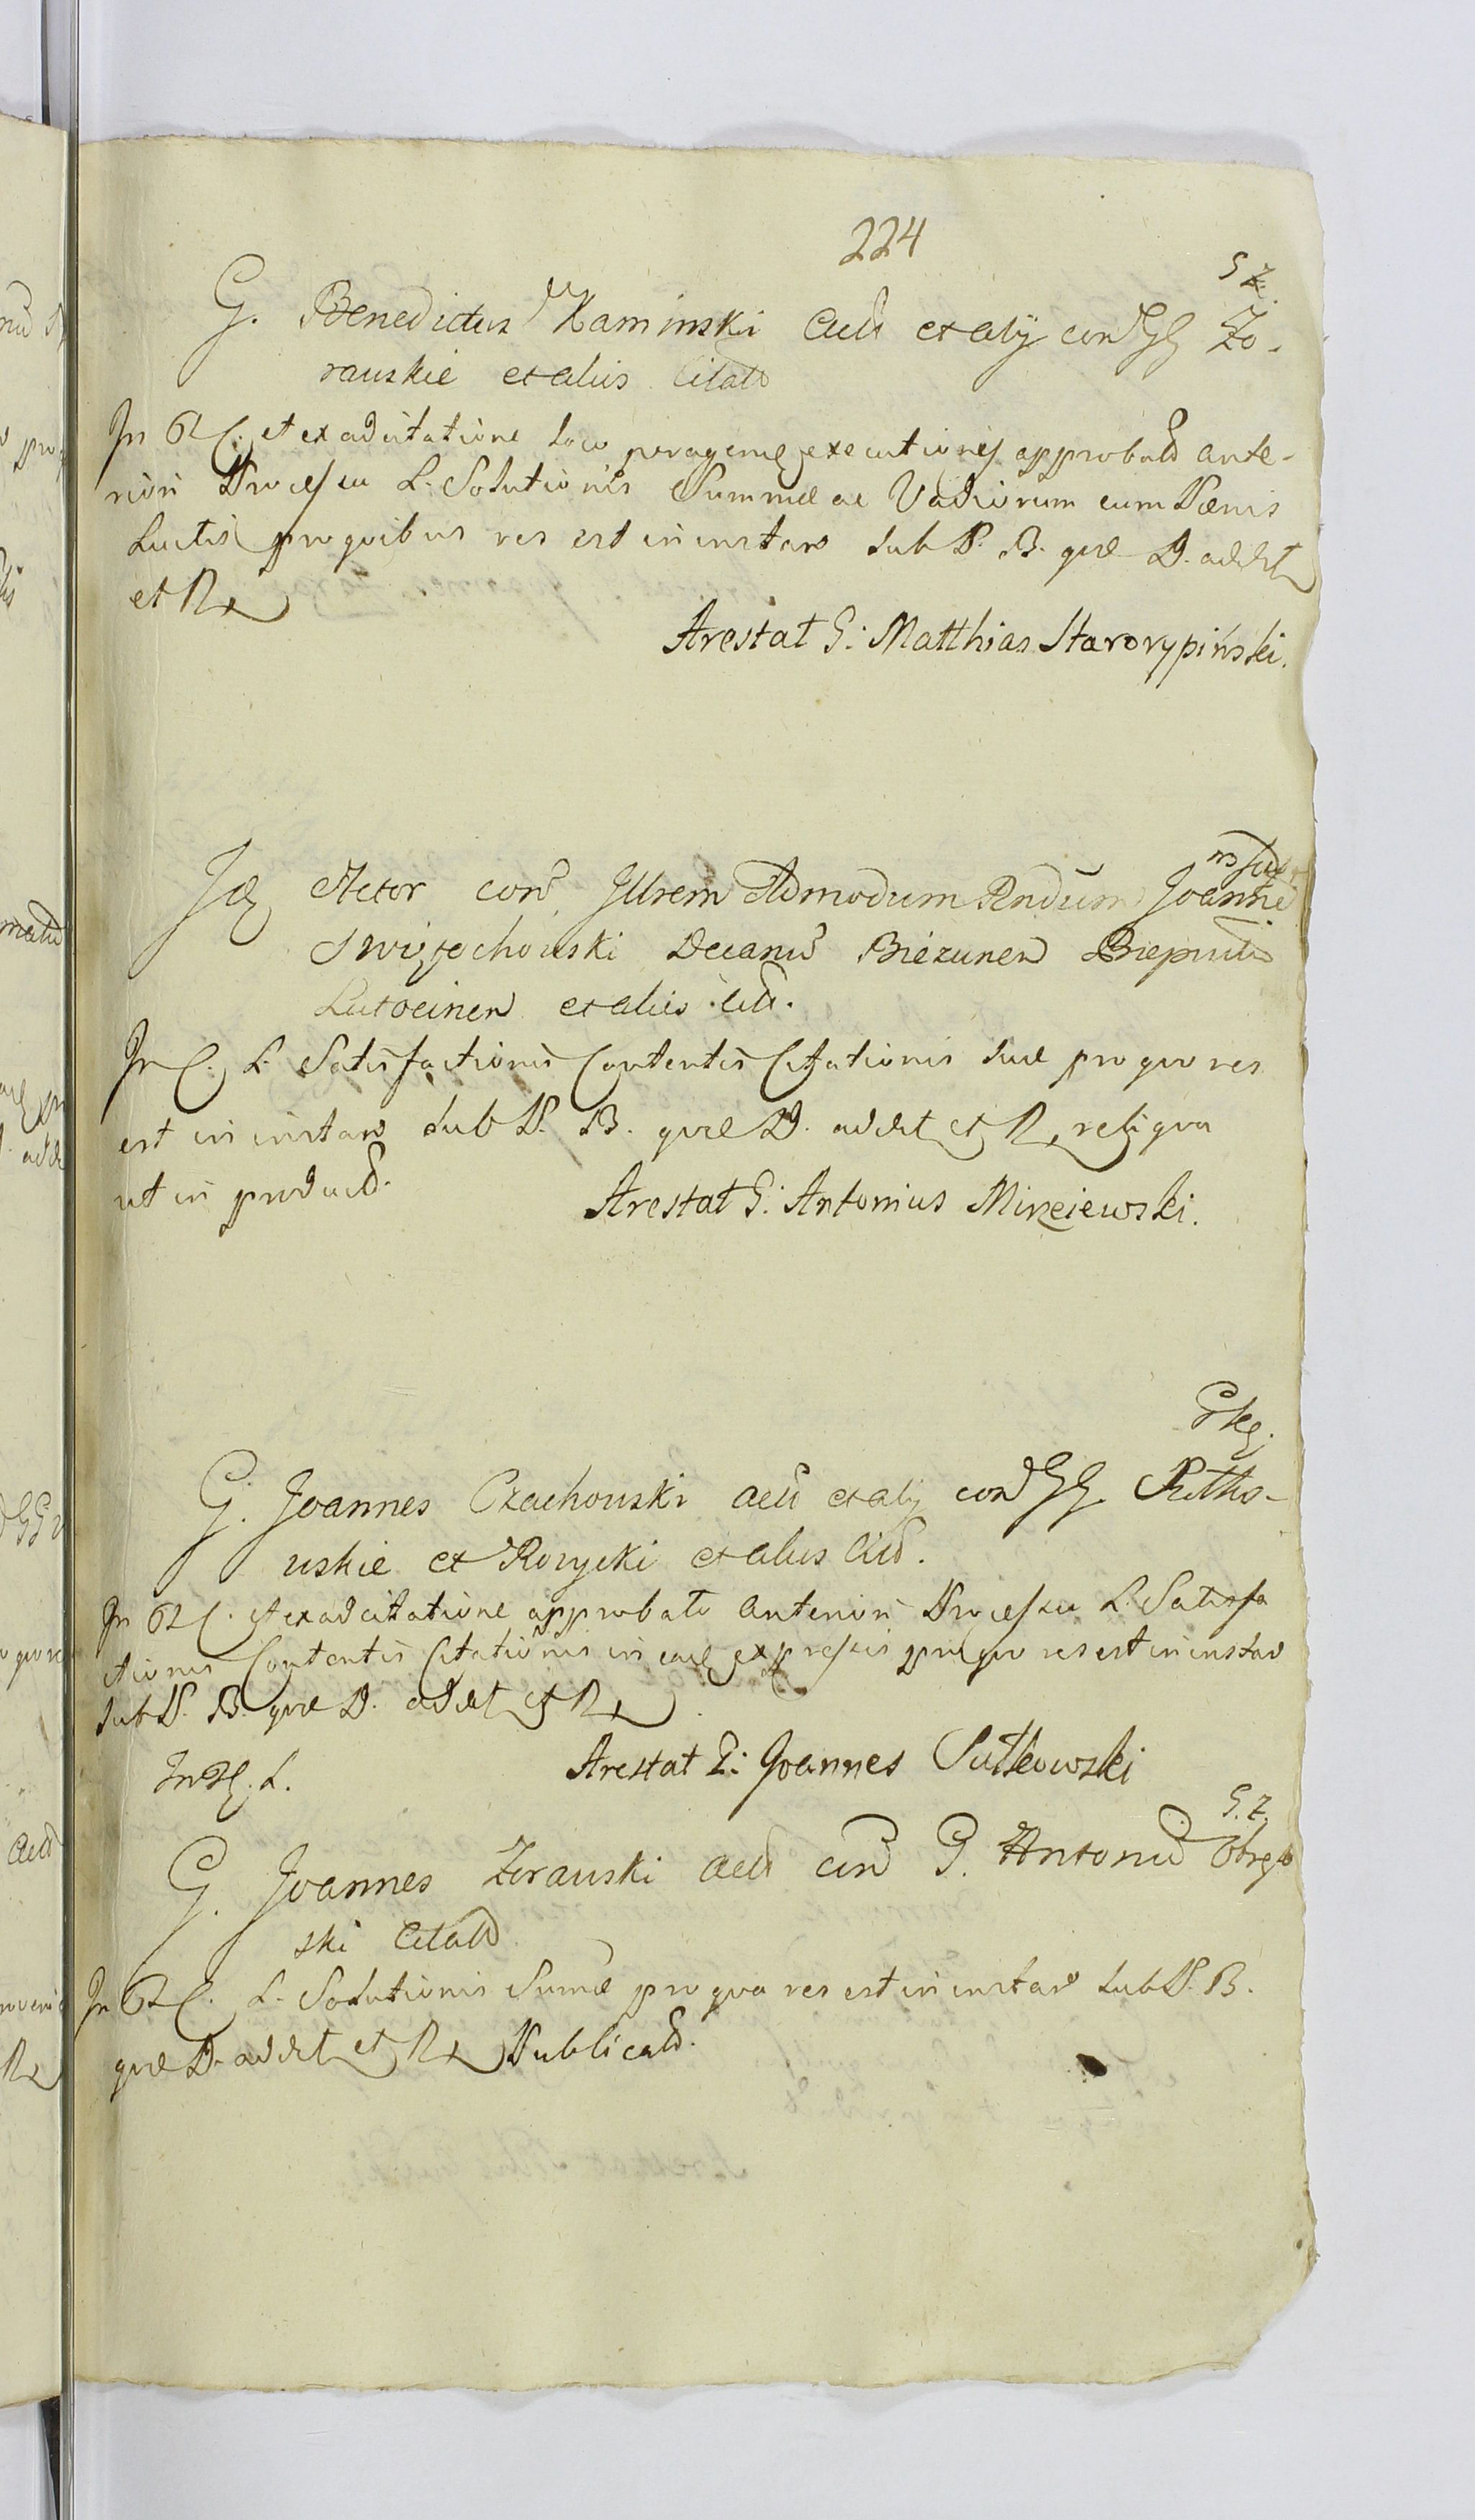 224
S Z.
G. Benedictus Kaminski Actt et alij con GG Zo-
rauskie et aliis Citatt
In C. et ex adcitatione loco peragenae executionis approbatt ante-
riori Processu L. Solutionis Summae ac Vadiorum cum Paenis
Luctis pro quibus res est in instan sub P. B. quae D. addet
et R
Arestat G: Matthias Starorypiński.
Actor con Illrem Admodum Rndum Joanne
Swięzochouski Decanu Biezunen
Lutocinen et aliis Citt.
In C. L. Satisfactionis Contentis Citationis suae pro quo res
est in instan sub P. B. quae D. addet et R reliqua
ut in producd.
Arestat G: Antonius Mirzeiewski.
G. Joannes Czachouski actt et alij con GG. Rutko-
uskie et Rozycki et aliis Citt.
In C. et ex adcitatione approbato anteriori Processu L. Satisfa
ctionis Contentis Citationis in eaq expressis pro quo res est in instan
sub P. B. quae D. addet et R
Arestat G: Joannes Sutkowski
L.
G. Z.
G. Joannes Zorauski actt con G. Antoniu
ski Citatt
In C. L. Solutionis Sumae pro qua res est in instan sub P. B.
quae D. addet et R Publicatt.